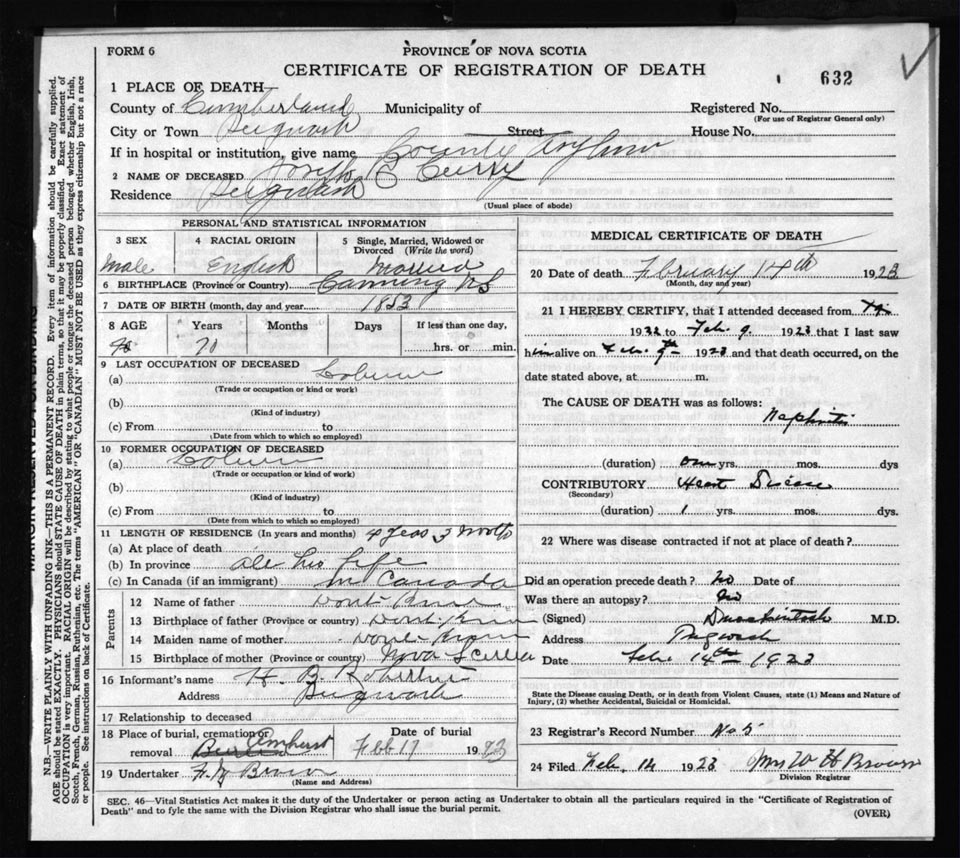 FORM 6
PROVINCE OF NOVA SCOTIA
CERTIFICATE OF REGISTRATION OF DEATH
632
1 PLACE OF DEATH
County of Cumberland Municipality of
Registered No.
(For use of Registrar General only)
City or Town Pugwash Street House No.
If in hospital or institution, give name County Asylum
2 NAME OF DECEASED Joseph C Curry
Residence Pugwash
(Usual place of abode)
PERSONAL AND STATISTICAL INFORMATION
3 SEX 4 RACIAL ORIGIN 5 Single, Married, Widowed or Divorced (Write the word)
Male English Married
6 BIRTHPLACE (Province or Country) Canning NS
7 DATE OF BIRTH (month, day and year) 1853
8 AGE Years Months Days If less than one day,
70 hrs. or min.
9 LAST OCCUPATION OF DECEASED
(a)
(Trade or occupation or kind or work)
(b)
(Kind of industry)
(c) From to
(Date from which to which so employed)
10 FORMER OCCUPATION OF DECEASED
(a)
(Trade or occupation or kind of work)
(b)
(Kind of industry)
(c) From to
(Date from which to which so employed)
11 LENGTH OF RESIDENCE (In years and months) 4 years 3 month
(a) At place of death
(b) In province all his life
(c) In Canada (if an immigrant) in Canada
Parents
12 Name of father dont know
13 Birthplace of father (Province or country) dont know
14 Maiden name of mother dont know
15 Birthplace of mother (Province or country) Nova Scotia
16 Informant's name H. B. Robertson
Address Pugwash
17 Relationship to deceased
18 Place of burial, cremation or removal Amherst
Date of burial Feb 17 1923
19 Undertaker F. Brown
(Name and Address)
MEDICAL CERTIFICATE OF DEATH
20 Date of death February 14th 1923
(Month, day and year)
21 I HEREBY CERTIFY, that I attended deceased from
1922 to Feb. 9 1923 that I last saw
him alive on Feb. 9th 1923 and that death occurred, on the
date stated above, at m.
The CAUSE OF DEATH was as follows:
Nephritis
(duration) one yrs. mos. dys
CONTRIBUTORY Heart Disease
(Secondary)
(duration) 1 yrs. mos. dys
22 Where was disease contracted if not at place of death?
Did an operation precede death? No Date of
Was there an autopsy? No
(Signed) M.D.
Address Pugwash
Date Feb. 14th 1923
State the Disease causing Death, or in death from Violent Causes, state (1) Means and Nature of
Injury, (2) whether Accidental, Suicidal or Homicidal.
23 Registrar's Record Number No 5
24 Filed Feb. 14 1923 Mrs W H Brown
Division Registrar
SEC. 46—Vital Statistics Act makes it the duty of the Undertaker or person acting as Undertaker to obtain all the particulars required in the "Certificate of Registration of
Death" and to fyle the same with the Division Registrar who shall issue the burial permit.
(OVER)
N.B.—WRITE PLAINLY WITH UNFADING INK—THIS IS A PERMANENT RECORD. Every item of information should be carefully supplied.
AGE should be stated EXACTLY. PHYSICIANS should STATE CAUSE OF DEATH in plain terms, so that it may be properly classified. Exact statement of
OCCUPATION is very important. RACIAL ORIGIN will be described by stating to what people or tongue the deceased person belonged whether English, Irish,
Scotch, French, German, Russian, Ruthenian, etc. The terms "AMERICAN" OR "CANADIAN" MUST NOT BE USED as they express citizenship but not a race
or people. See instructions on back of Certificate.